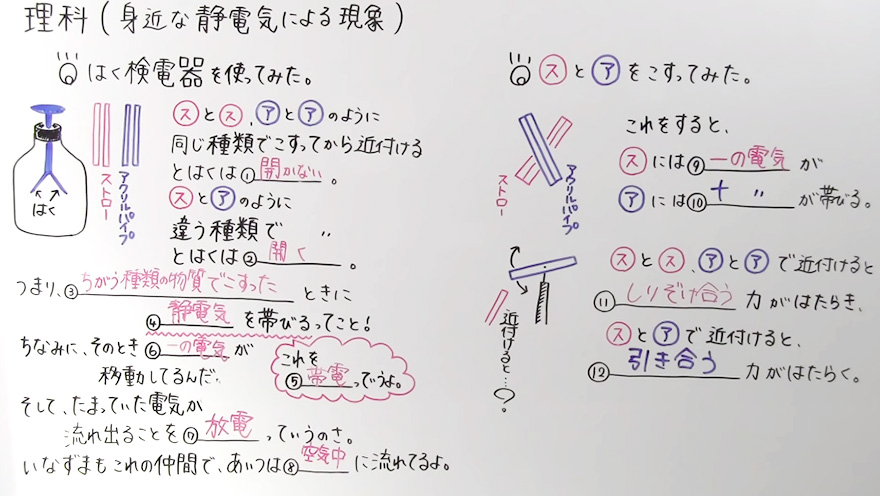 理科(身近な静電気による現象)
はく検電器を使ってみた。
はく
ストロー
アクリルパイプ
スとス、アとアのように
同じ種類でこすってから近付ける
とはくは①開かない。
スとアのように
違う種類で 〃
とはくは②開く。
つまり、③ちがう種類の物質でこすったときに
④静電気を帯びるってこと!
ちなみに、そのとき⑥ーの電気が
移動してるんだ。
これを
⑤帯電っていうよ。
そして、たまっていた電気が
流れ出ることを⑦放電っていうのさ。
いなずまもこれの仲間で、あいつは⑧空気中に流れてるよ。
スとアをこすってみた。
ストロー
アクリルパイプ
これをすると、
スには⑨ーの電気が
アには⑩+ 〃 が帯びる。
近付けると…?
スとス、アとアで近付けると
⑪しりぞけ合う力がはたらき、
スとアで近付けると、
⑫引き合う力がはたらく。